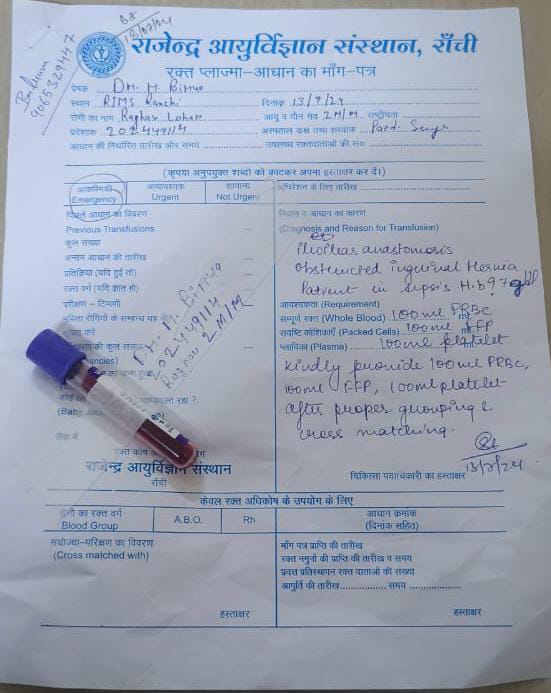 Bihum
9065329447
B+
12/07/24
राजेन्द्र आयुर्विज्ञान संस्थान, राँची
रक्त प्लाज्मा-आधान का माँग-पत्र
प्रेषक Dr. H. Birua
स्थान RIMS Ranchi दिनांक 13/7/24
रोगी का नाम Raghav Lohar आयु व यौन भेद 2M/M राष्ट्रीयता
प्रवेशांक 202449114 अस्पताल कक्ष तथा शय्यांक Paed. Surge
आधान की निर्धारित तारीख और समय उपलब्ध रक्तदाताओं की सं०
(कृपया अनुपयुक्त शब्दों को काटकर अपना हस्ताक्षर कर दें।)
आकस्मिकी Emergency
अत्यावश्यक Urgent
सामान्य Not Urgent
ऑपरेशन के लिए तारीख
पिछले आधान का विवरण
Previous Transfusions
कुल संख्या
अन्तिम आधान की तारीख
प्रतिक्रिया (यदि हुई तो)
रक्त वर्ग (यदि ज्ञात हो)
परीक्षण - टिप्पणी
महिला रोगियों के सम्बन्ध यह
करे
की कुल संख्या
ancies)
रहा ?
(Baby
सेवा में
रक्त कोष
राजेन्द्र आयुर्विज्ञान संस्थान
राँची
Dr. H. Birua
202449114
Raghav 2M/M
निदान व आधान का कारण
(Diagnosis and Reason for Transfusion)
anastomosis
obstructed inguinal Hernia
Patient in sepsis Hb 9.7
आवश्यकता (Requirement)
सम्पूर्ण रक्त (Whole Blood) 100ml PRBC
संवेष्टि कोशिकाएँ (Packed Cells) 100ml FFP
प्लाविका (Plasma) 100ml platelet
kindly provide 100ml PRBC,
100ml FFP, 100ml platelet
after proper grouping &
cross matching.
13/7/24
चिकित्सा पदाधिकारी का हस्ताक्षर
केवल रक्त अधिकोष के उपयोग के लिए
रोगी का रक्त वर्ग
Blood Group
A.B.O.
Rh
आधान क्रमांक
(दिनांक सहित)
संयोज्या-परिक्षण का विवरण
(Cross matched with)
माँग पत्र प्राप्ति की तारीख
रक्त नमुनों की प्राप्ति की तारीख व समय
प्रदत्त प्रतिस्थापन रक्त दाताओं की संख्या
आपुर्ति की तारीख................. समय.................
हस्ताक्षर
हस्ताक्षर